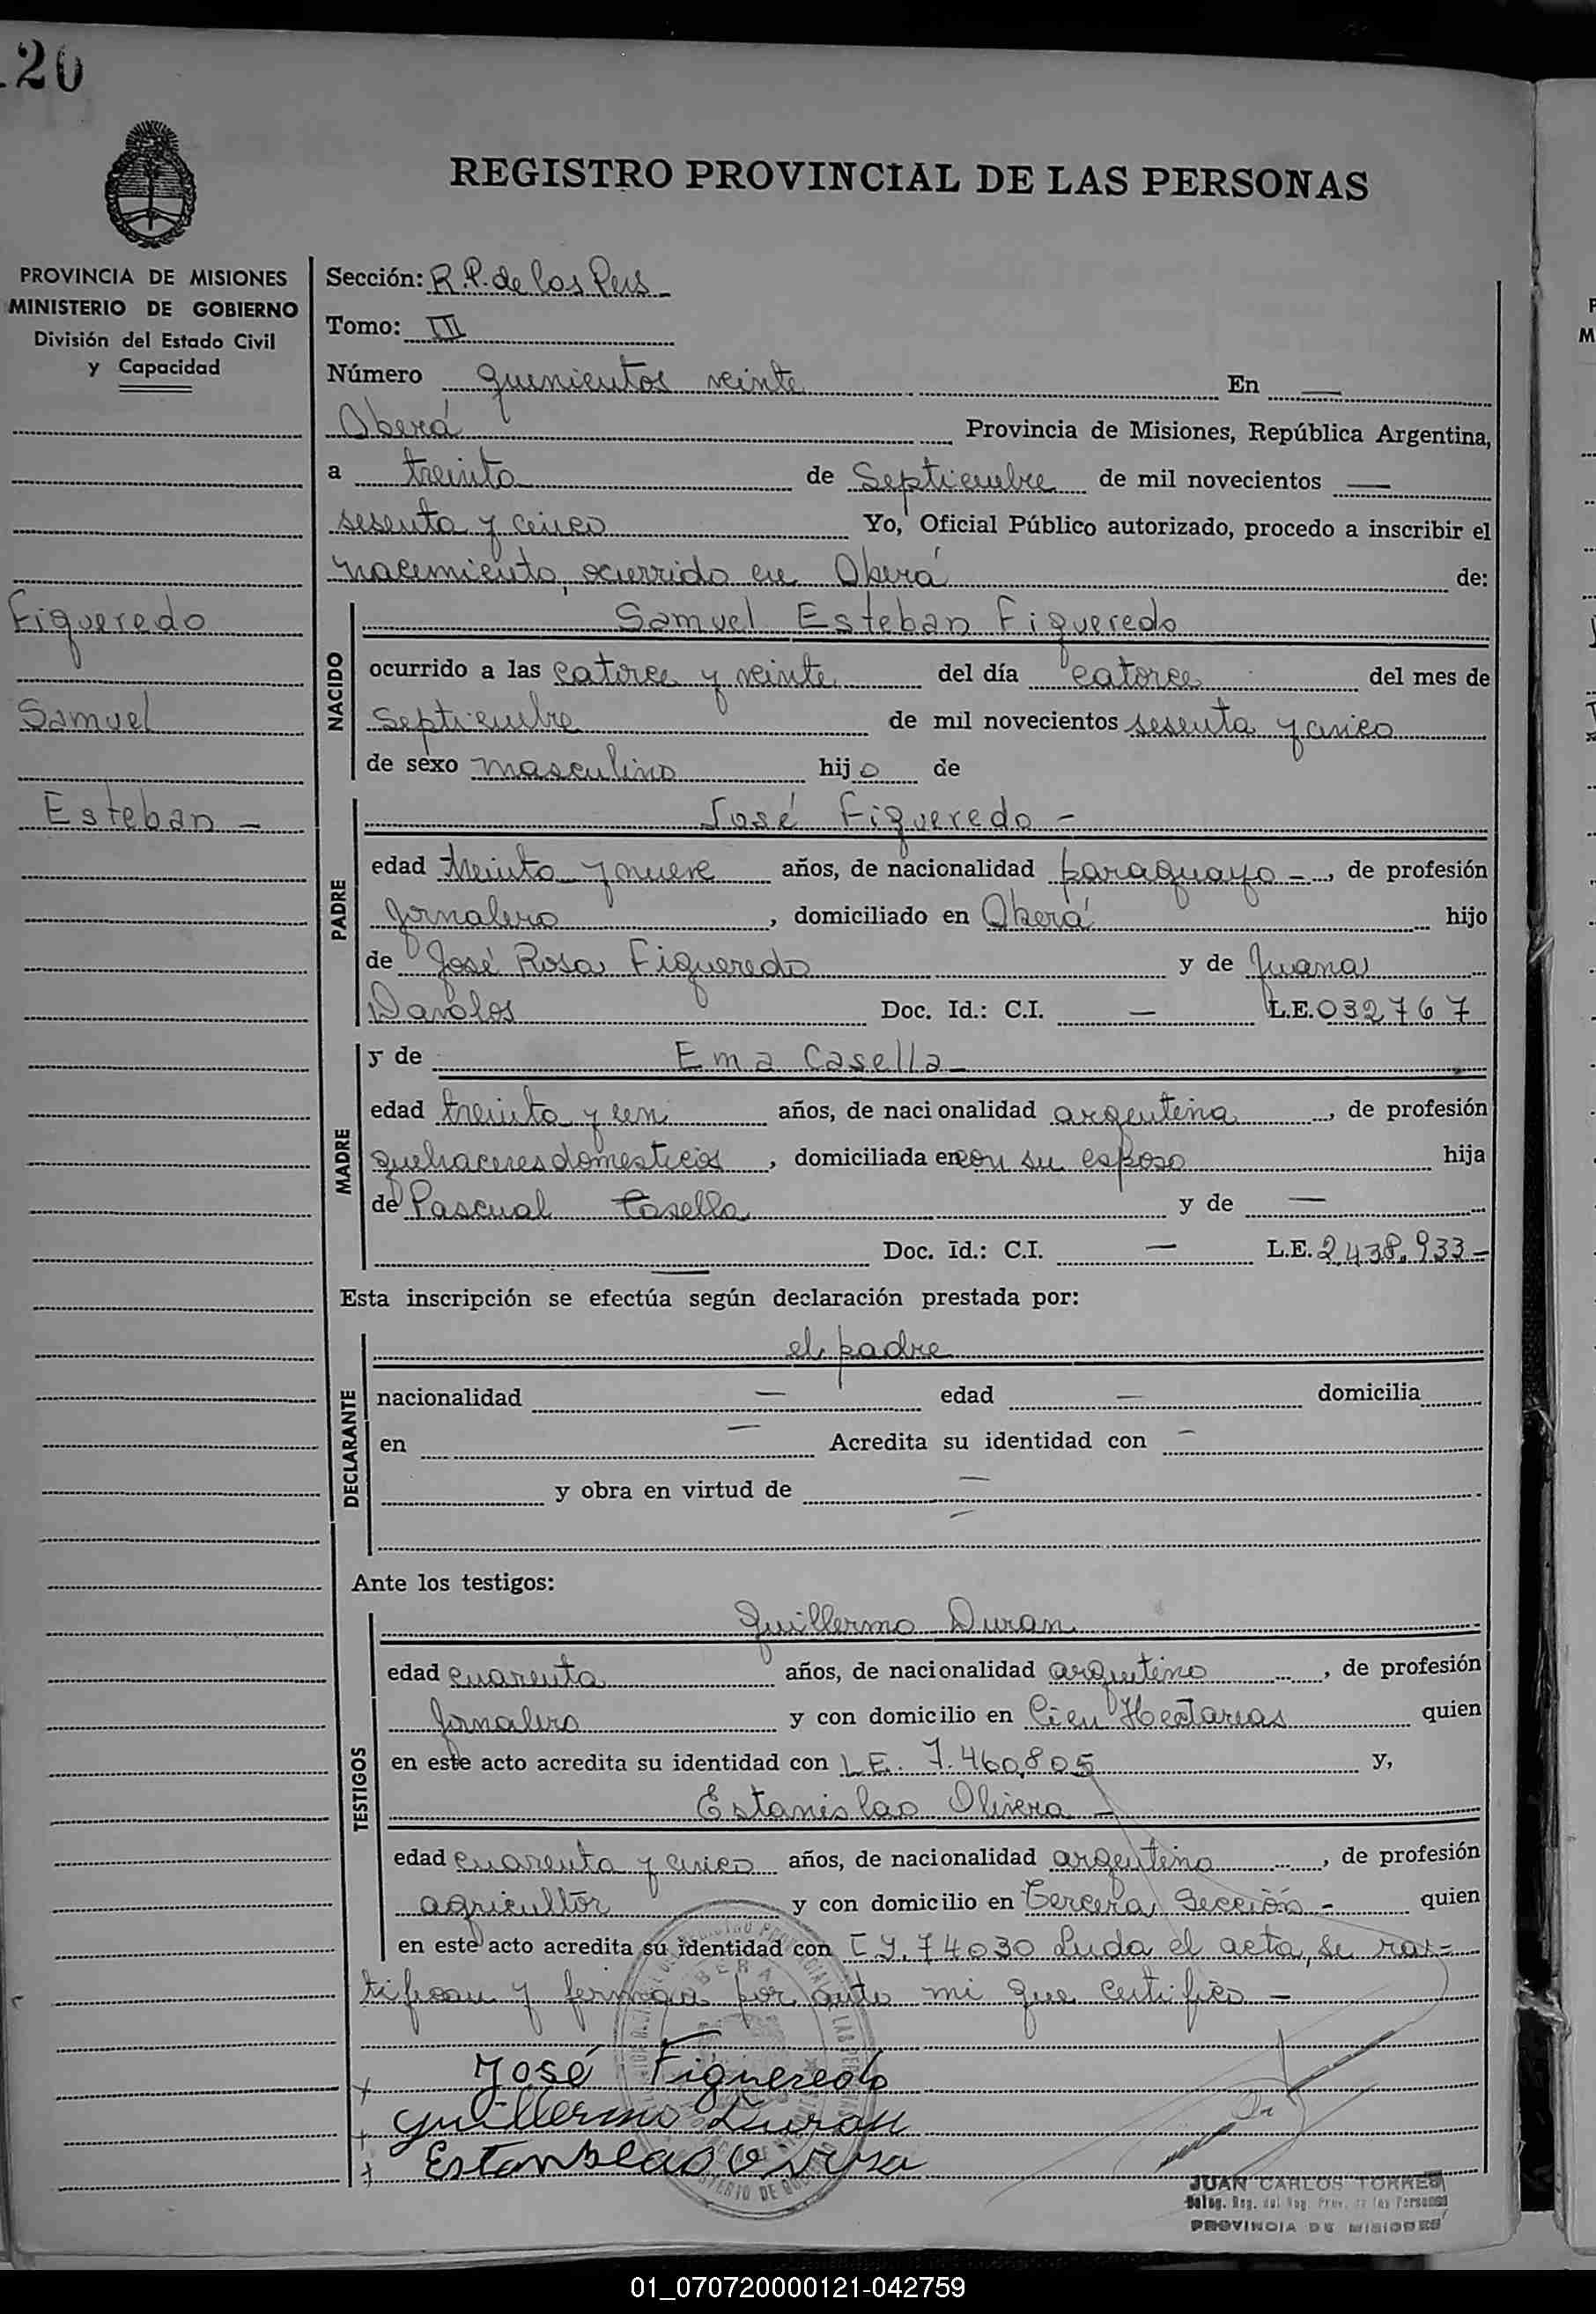 20
REGISTRO PROVINCIAL DE LAS PERSONAS
PROVINCIA DE MISIONES
MINISTERIO DE GOBIERNO
División del Estado Civil
y Capacidad
Figueredo
Samuel
Esteban -
Sección: R.P. de las Pers
Tomo: III
Número quinientos veinte En —
Oberá Provincia de Misiones, República Argentina,
a treinta de Septiembre de mil novecientos —
sesenta y cinco Yo, Oficial Público autorizado, procedo a inscribir el
nacimiento ocurrido en Oberá de:
NACIDO
Samuel Esteban Figueredo
ocurrido a las catorce y veinte del día catorce del mes de
Septiembre de mil novecientos sesenta y cinco
de sexo masculino hijo de
PADRE
José Figueredo -
edad treinta y nueve años, de nacionalidad paraguayo -, de profesión
Jornalero, domiciliado en Oberá hijo
de José Rosa Figueredo y de Juana
Davalos Doc. Id.: C.I. — L.E. 032767
MADRE
y de Ema Casella
edad treinta y un años, de nacionalidad argentina, de profesión
quehaceres domesticos, domiciliada en con su esposo hija
de Pascual Casella y de —
Doc. Id.: C.I. — L.E. 2.438.933 -
Esta inscripción se efectúa según declaración prestada por:
DECLARANTE
el padre
nacionalidad — edad — domicilia
en — Acredita su identidad con -
y obra en virtud de —
Ante los testigos:
TESTIGOS
Guillermo Duran
edad cuarenta años, de nacionalidad argentino, de profesión
Jornalero y con domicilio en Cien Hectareas quien
en este acto acredita su identidad con L.E. 7.460.805 y,
Estanislao Olivera -
edad cuarenta y cinco años, de nacionalidad argentino, de profesión
agricultor y con domicilio en Tercera Sección - quien
en este acto acredita su identidad con 74030 Leida el acta, se ra-
tifican y firman por ante mi que certifico -
José Figueredo
Guillermo Duran
JUAN CARLOS TORRES
PROVINCIA DE MISIONES
01_070720000121-042759